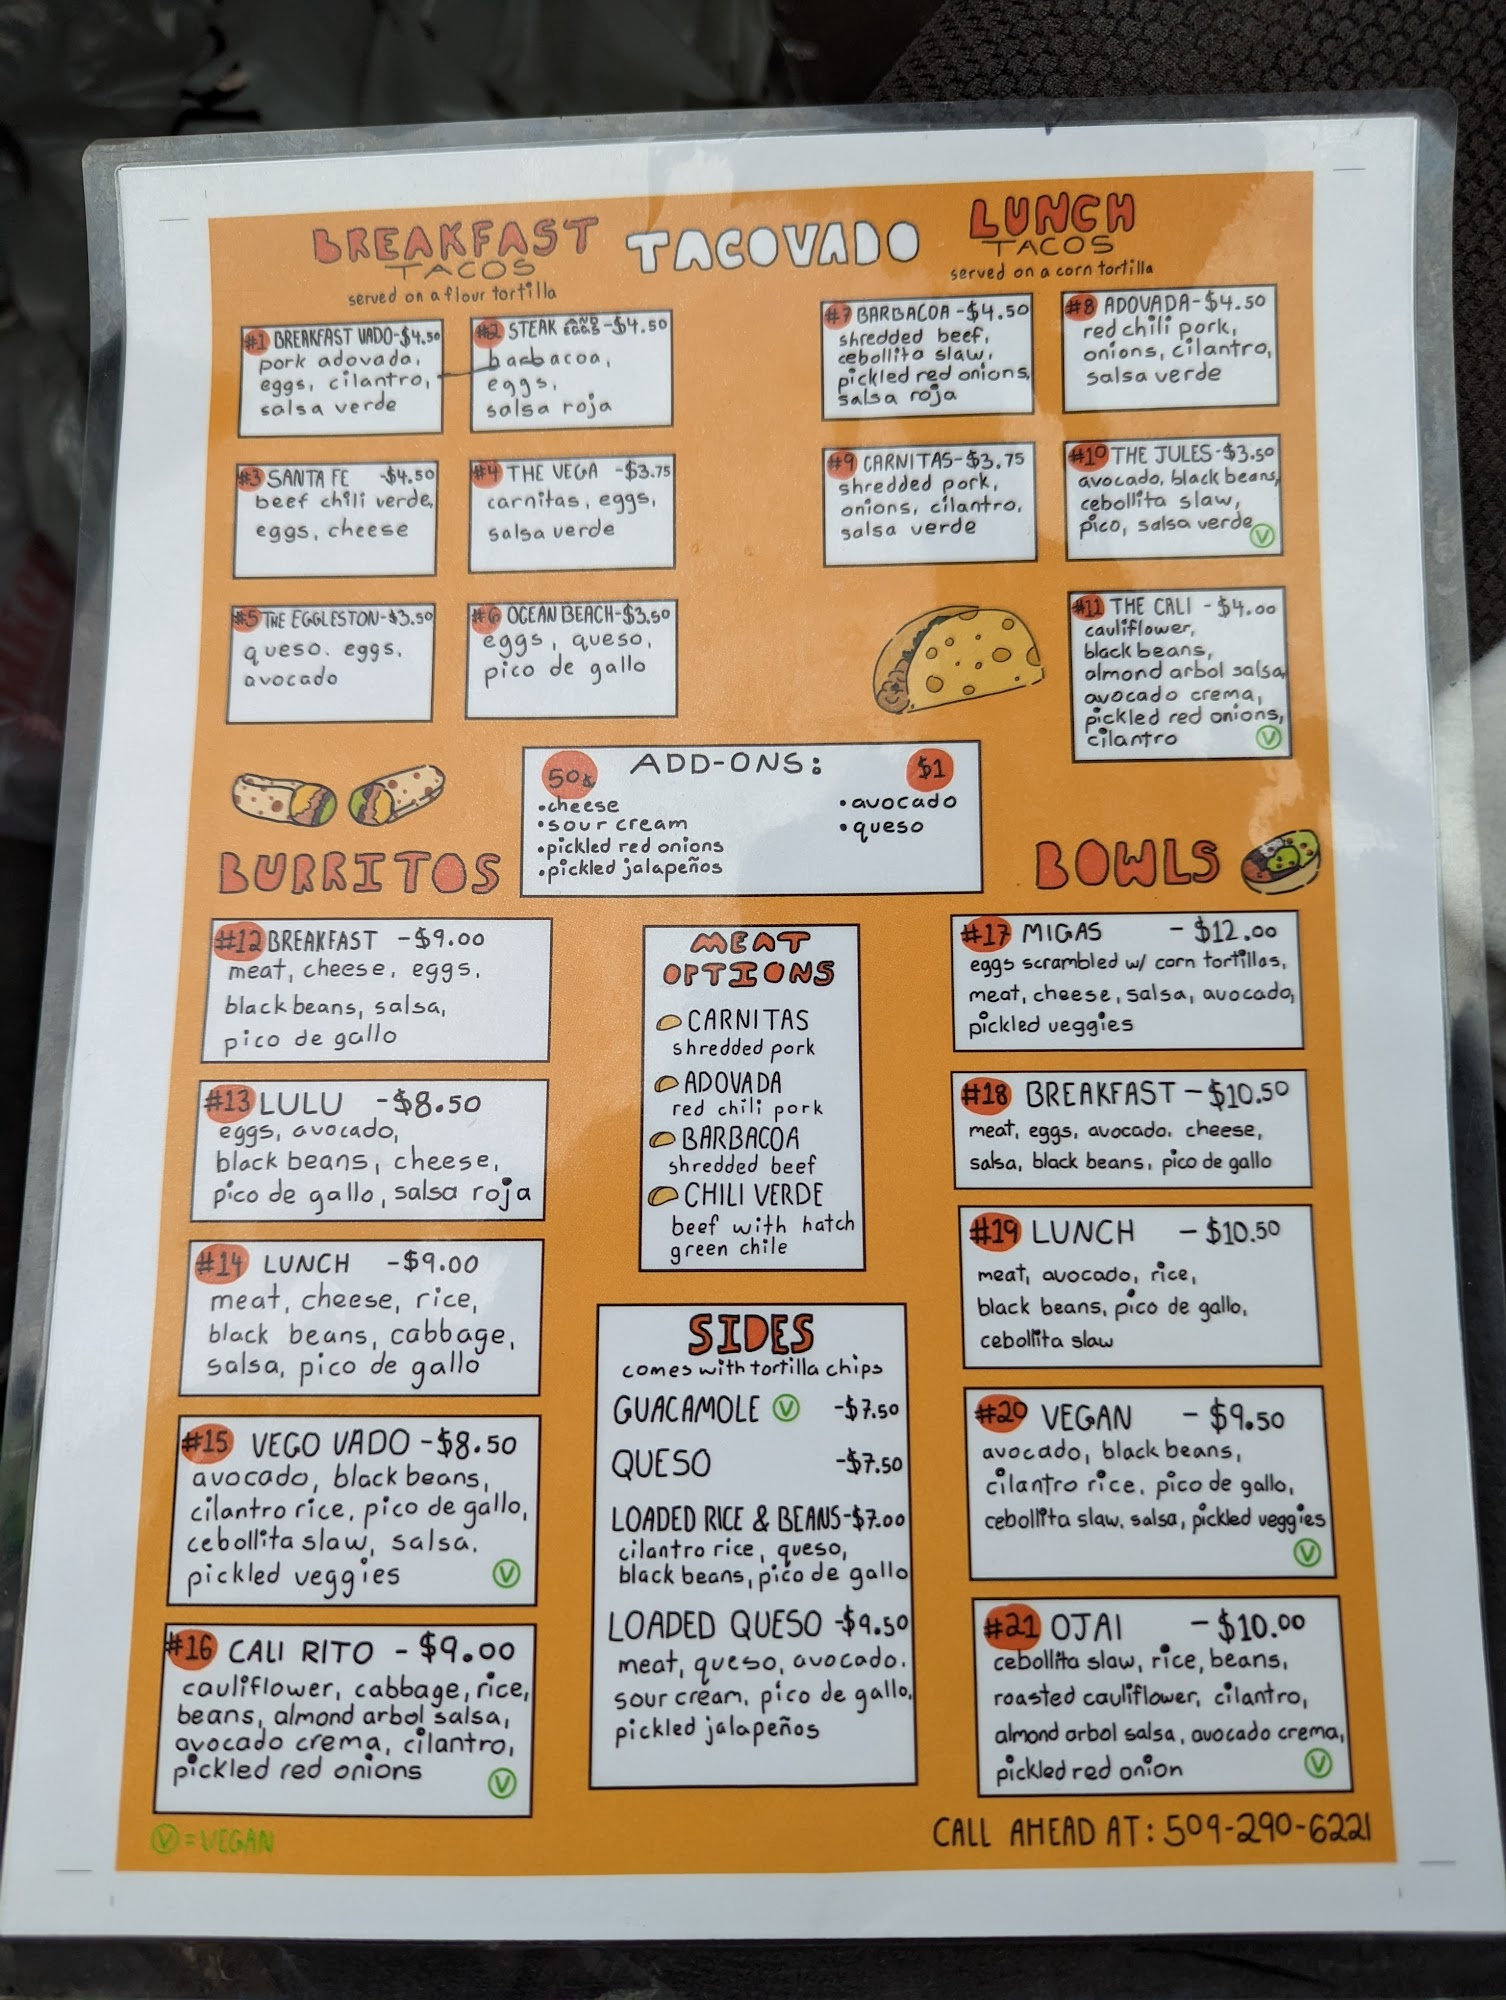 BREAKFAST
TACOS
served on a flour tortilla
TACOVADO
LUNCH
TACOS
served on a corn tortilla
#1 BREAKFAST VADO-$4.50
pork adovada,
eggs, cilantro,
salsa verde
#2 STEAK AND EGGS -$4.50
barbacoa,
eggs,
salsa roja
#3 SANTA FE -$4.50
beef chili verde,
eggs, cheese
#4 THE VEGA -$3.75
carnitas, eggs,
salsa verde
#5 THE EGGLESTON-$3.50
queso. eggs,
avocado
#6 OCEAN BEACH-$3.50
eggs, queso,
pico de gallo
#7 BARBACOA -$4.50
shredded beef,
cebollita slaw,
pickled red onions,
salsa roja
#8 ADOVADA-$4.50
red chili pork,
onions, cilantro,
salsa verde
#9 CARNITAS-$3.75
shredded pork,
onions, cilantro,
salsa verde
#10 THE JULES-$3.50
avocado, black beans,
cebollita slaw,
pico, salsa verde
V
#11 THE CALI -$4.00
cauliflower,
black beans,
almond arbol salsa,
avocado crema,
pickled red onions,
cilantro V
ADD-ONS:
50¢
•cheese
•sour cream
•pickled red onions
•pickled jalapeños
$1
•avocado
•queso
BURRITOS
#12 BREAKFAST -$9.00
meat, cheese, eggs,
black beans, salsa,
pico de gallo
#13 LULU -$8.50
eggs, avocado,
black beans, cheese,
pico de gallo, salsa roja
#14 LUNCH -$9.00
meat, cheese, rice,
black beans, cabbage,
salsa, pico de gallo
#15 VEGO VADO -$8.50
avocado, black beans,
cilantro rice, pico de gallo,
cebollita slaw, salsa,
pickled veggies V
#16 CALI RITO -$9.00
cauliflower, cabbage, rice,
beans, almond arbol salsa,
avocado crema, cilantro,
pickled red onions V
V =VEGAN
MEAT
OPTIONS
CARNITAS
shredded pork
ADOVADA
red chili pork
BARBACOA
shredded beef
CHILI VERDE
beef with hatch
green chile
SIDES
comes with tortilla chips
GUACAMOLE V -$7.50
QUESO -$7.50
LOADED RICE & BEANS-$7.00
cilantro rice, queso,
black beans, pico de gallo
LOADED QUESO -$9.50
meat, queso, avocado.
sour cream, pico de gallo,
pickled jalapeños
BOWLS
#17 MIGAS -$12.00
eggs scrambled w/ corn tortillas,
meat, cheese, salsa, avocado,
pickled veggies
#18 BREAKFAST -$10.50
meat, eggs, avocado. cheese,
salsa, black beans, pico de gallo
#19 LUNCH -$10.50
meat, avocado, rice,
black beans, pico de gallo,
cebollita slaw
#20 VEGAN -$9.50
avocado, black beans,
cilantro rice, pico de gallo,
cebollita slaw. salsa, pickled veggies
V
#21 OJAI -$10.00
cebollita slaw, rice, beans,
roasted cauliflower, cilantro,
almond arbol salsa, avocado crema,
pickled red onion V
CALL AHEAD AT: 509-290-6221